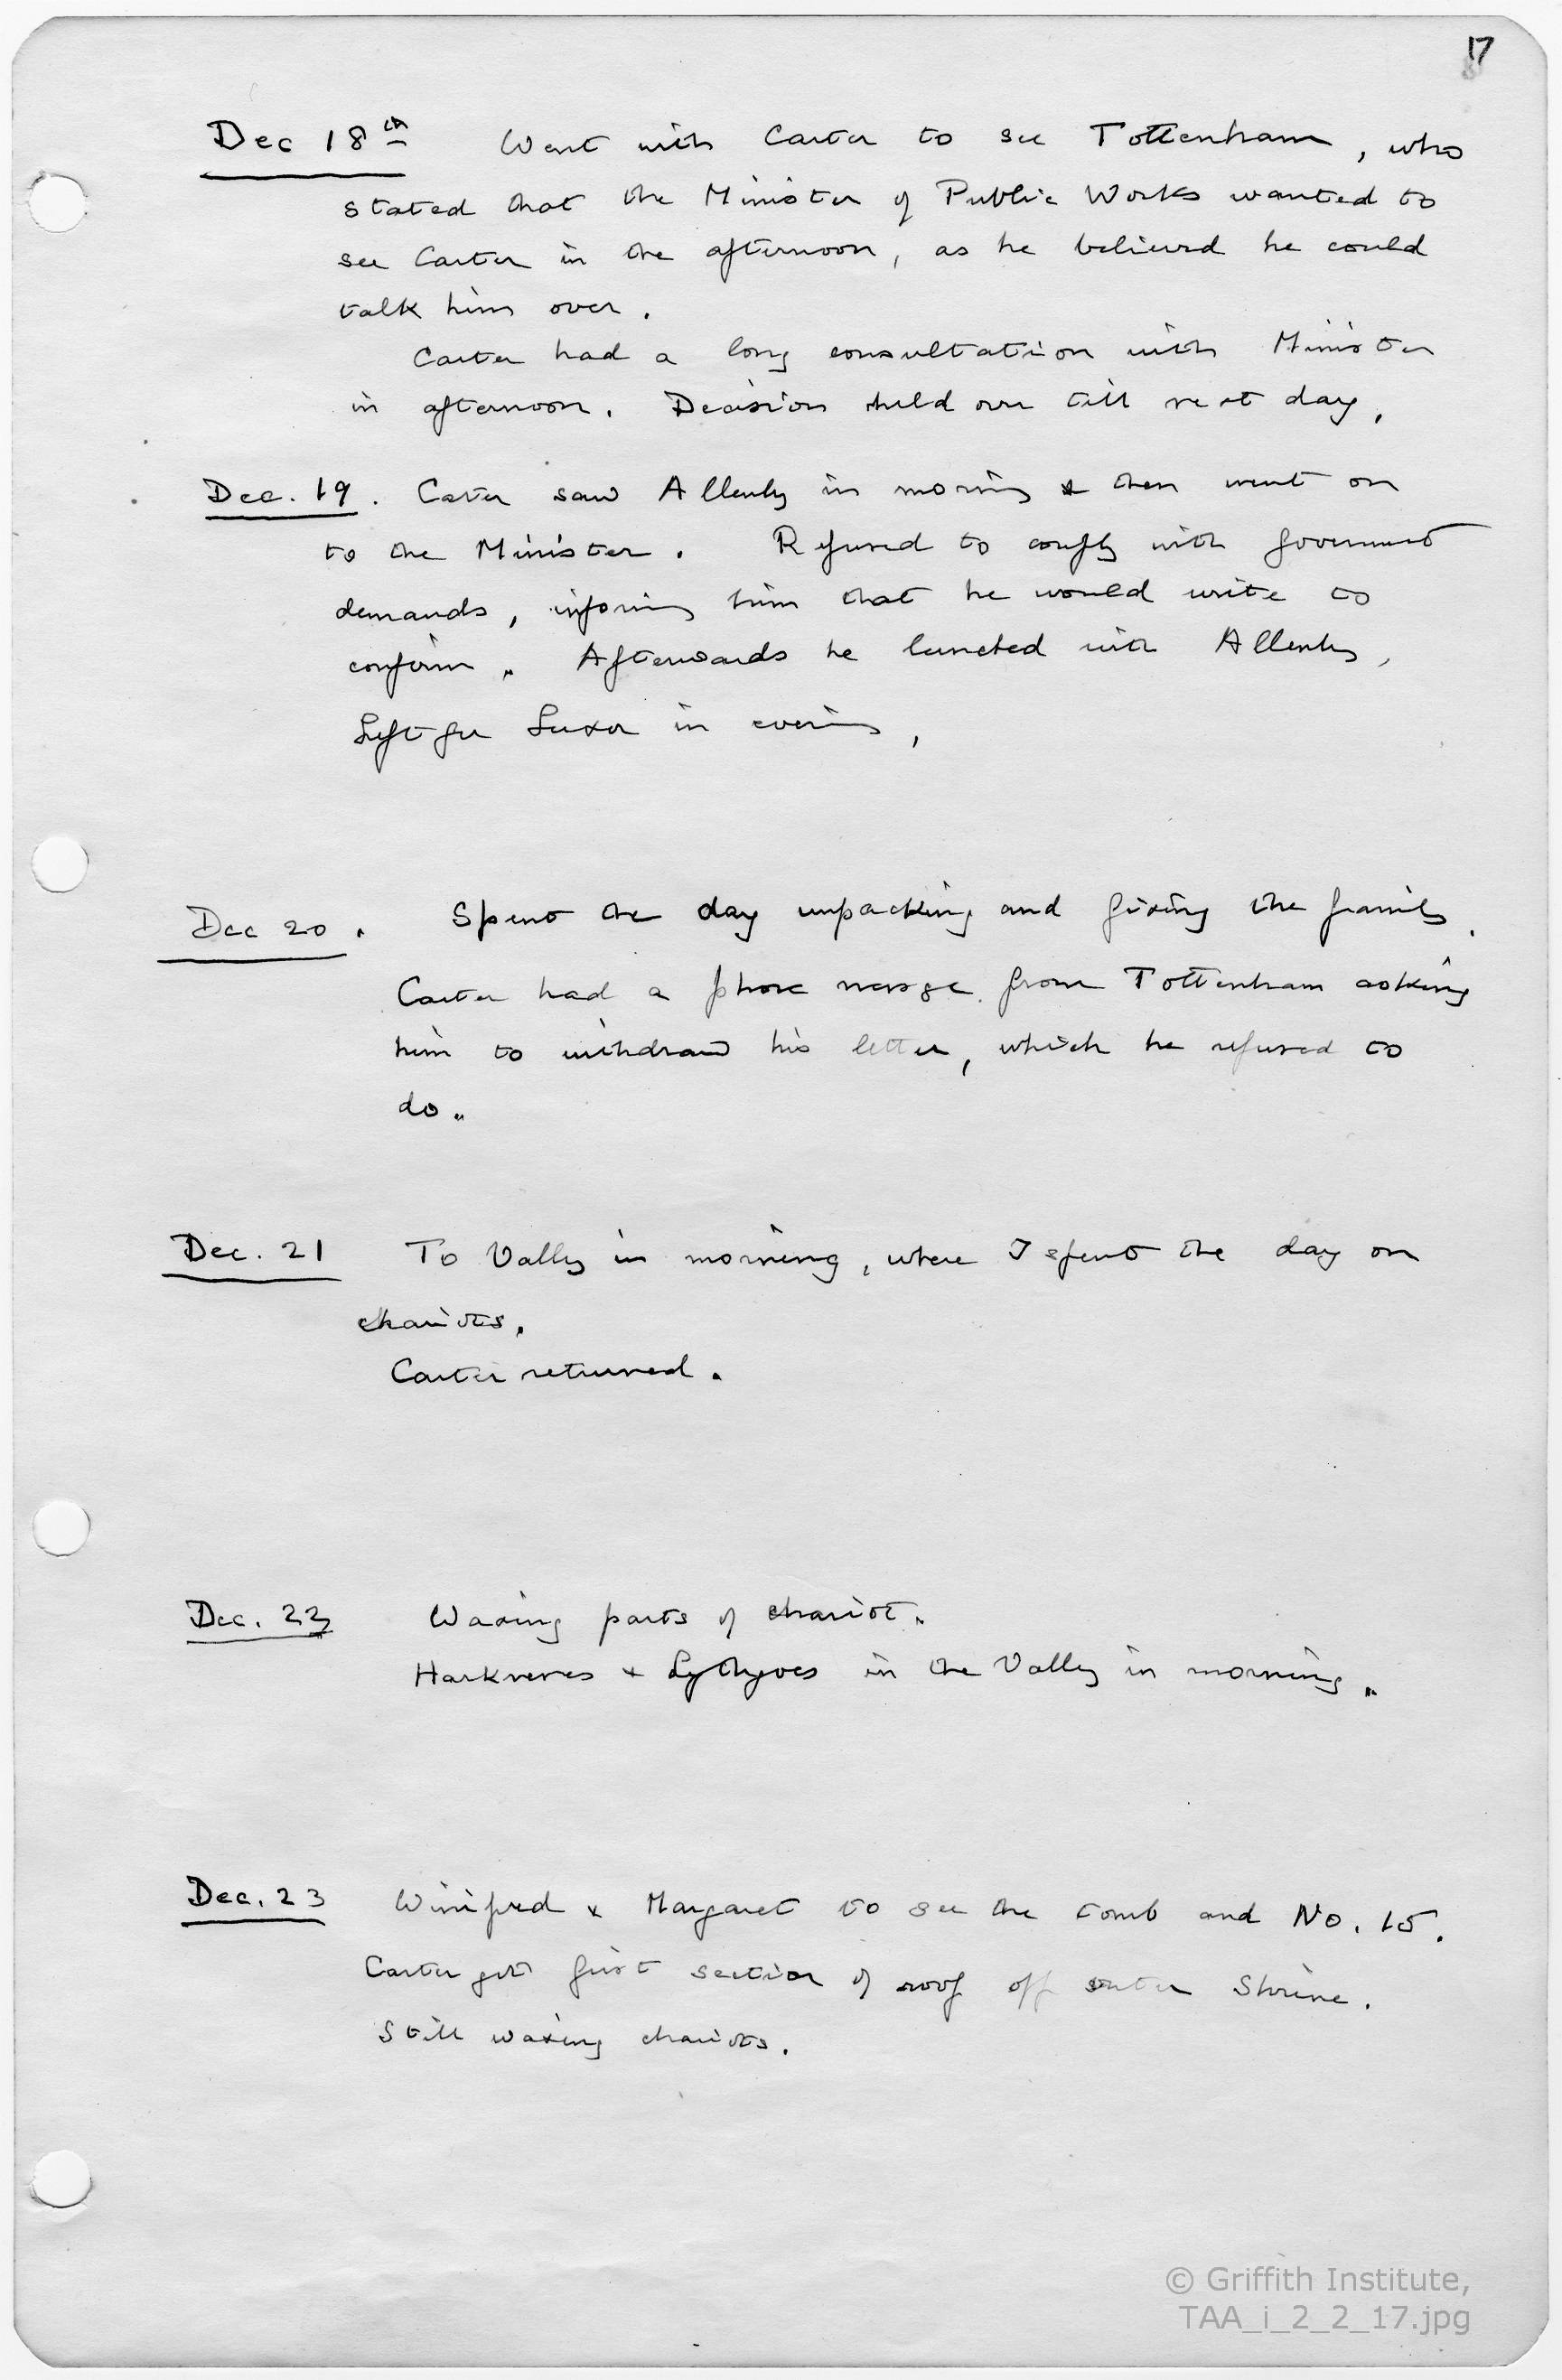 17
Dec 18th Went with Carter to see Tottenham, who
stated that the Minister of Public Works wanted to
see Carter in the afternoon, as he believed he could
talk him over.
Carter had a long consultation with Minister
in afternoon. Decision held over till next day.
Dec. 19. Carter saw Allenby in morning & then went on
to the Minister. Refused to comply with government
demands, informing him that he would write to
confirm. Afterwards he lunched with Allenby.
Left for Luxor in evening.
Dec 20. Spent the day unpacking and fixing the family.
Carter had a phone message from Tottenham asking
him to withdraw his letter, which he refused to
do.
Dec. 21 To Valley in morning, where I spent the day on
chariots.
Carter returned.
Dec. 22 Waxing parts of chariot.
Harknesses & Lythgoes in the Valley in morning.
Dec. 23 Winifred & Margaret to see the tomb and No. 15.
Carter got first section of roof off outer Shrine.
Still waxing chariots.
© Griffith Institute,
TAA_i_2_2_17.jpg